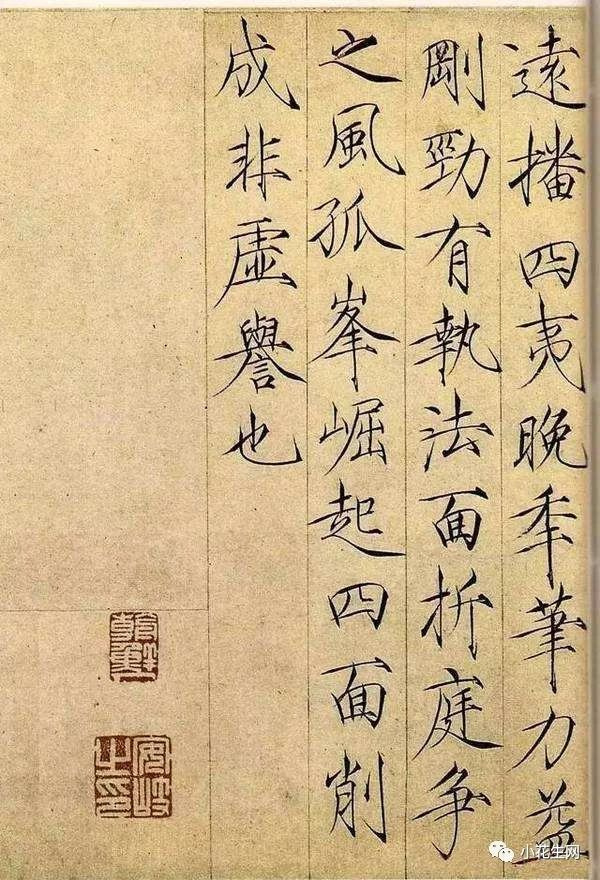 遠播四夷晚秊筆力益
剛勁有執法面折庭爭
之風孤峯崛起四面削
成非虛譽也
安岐之印
小花生网